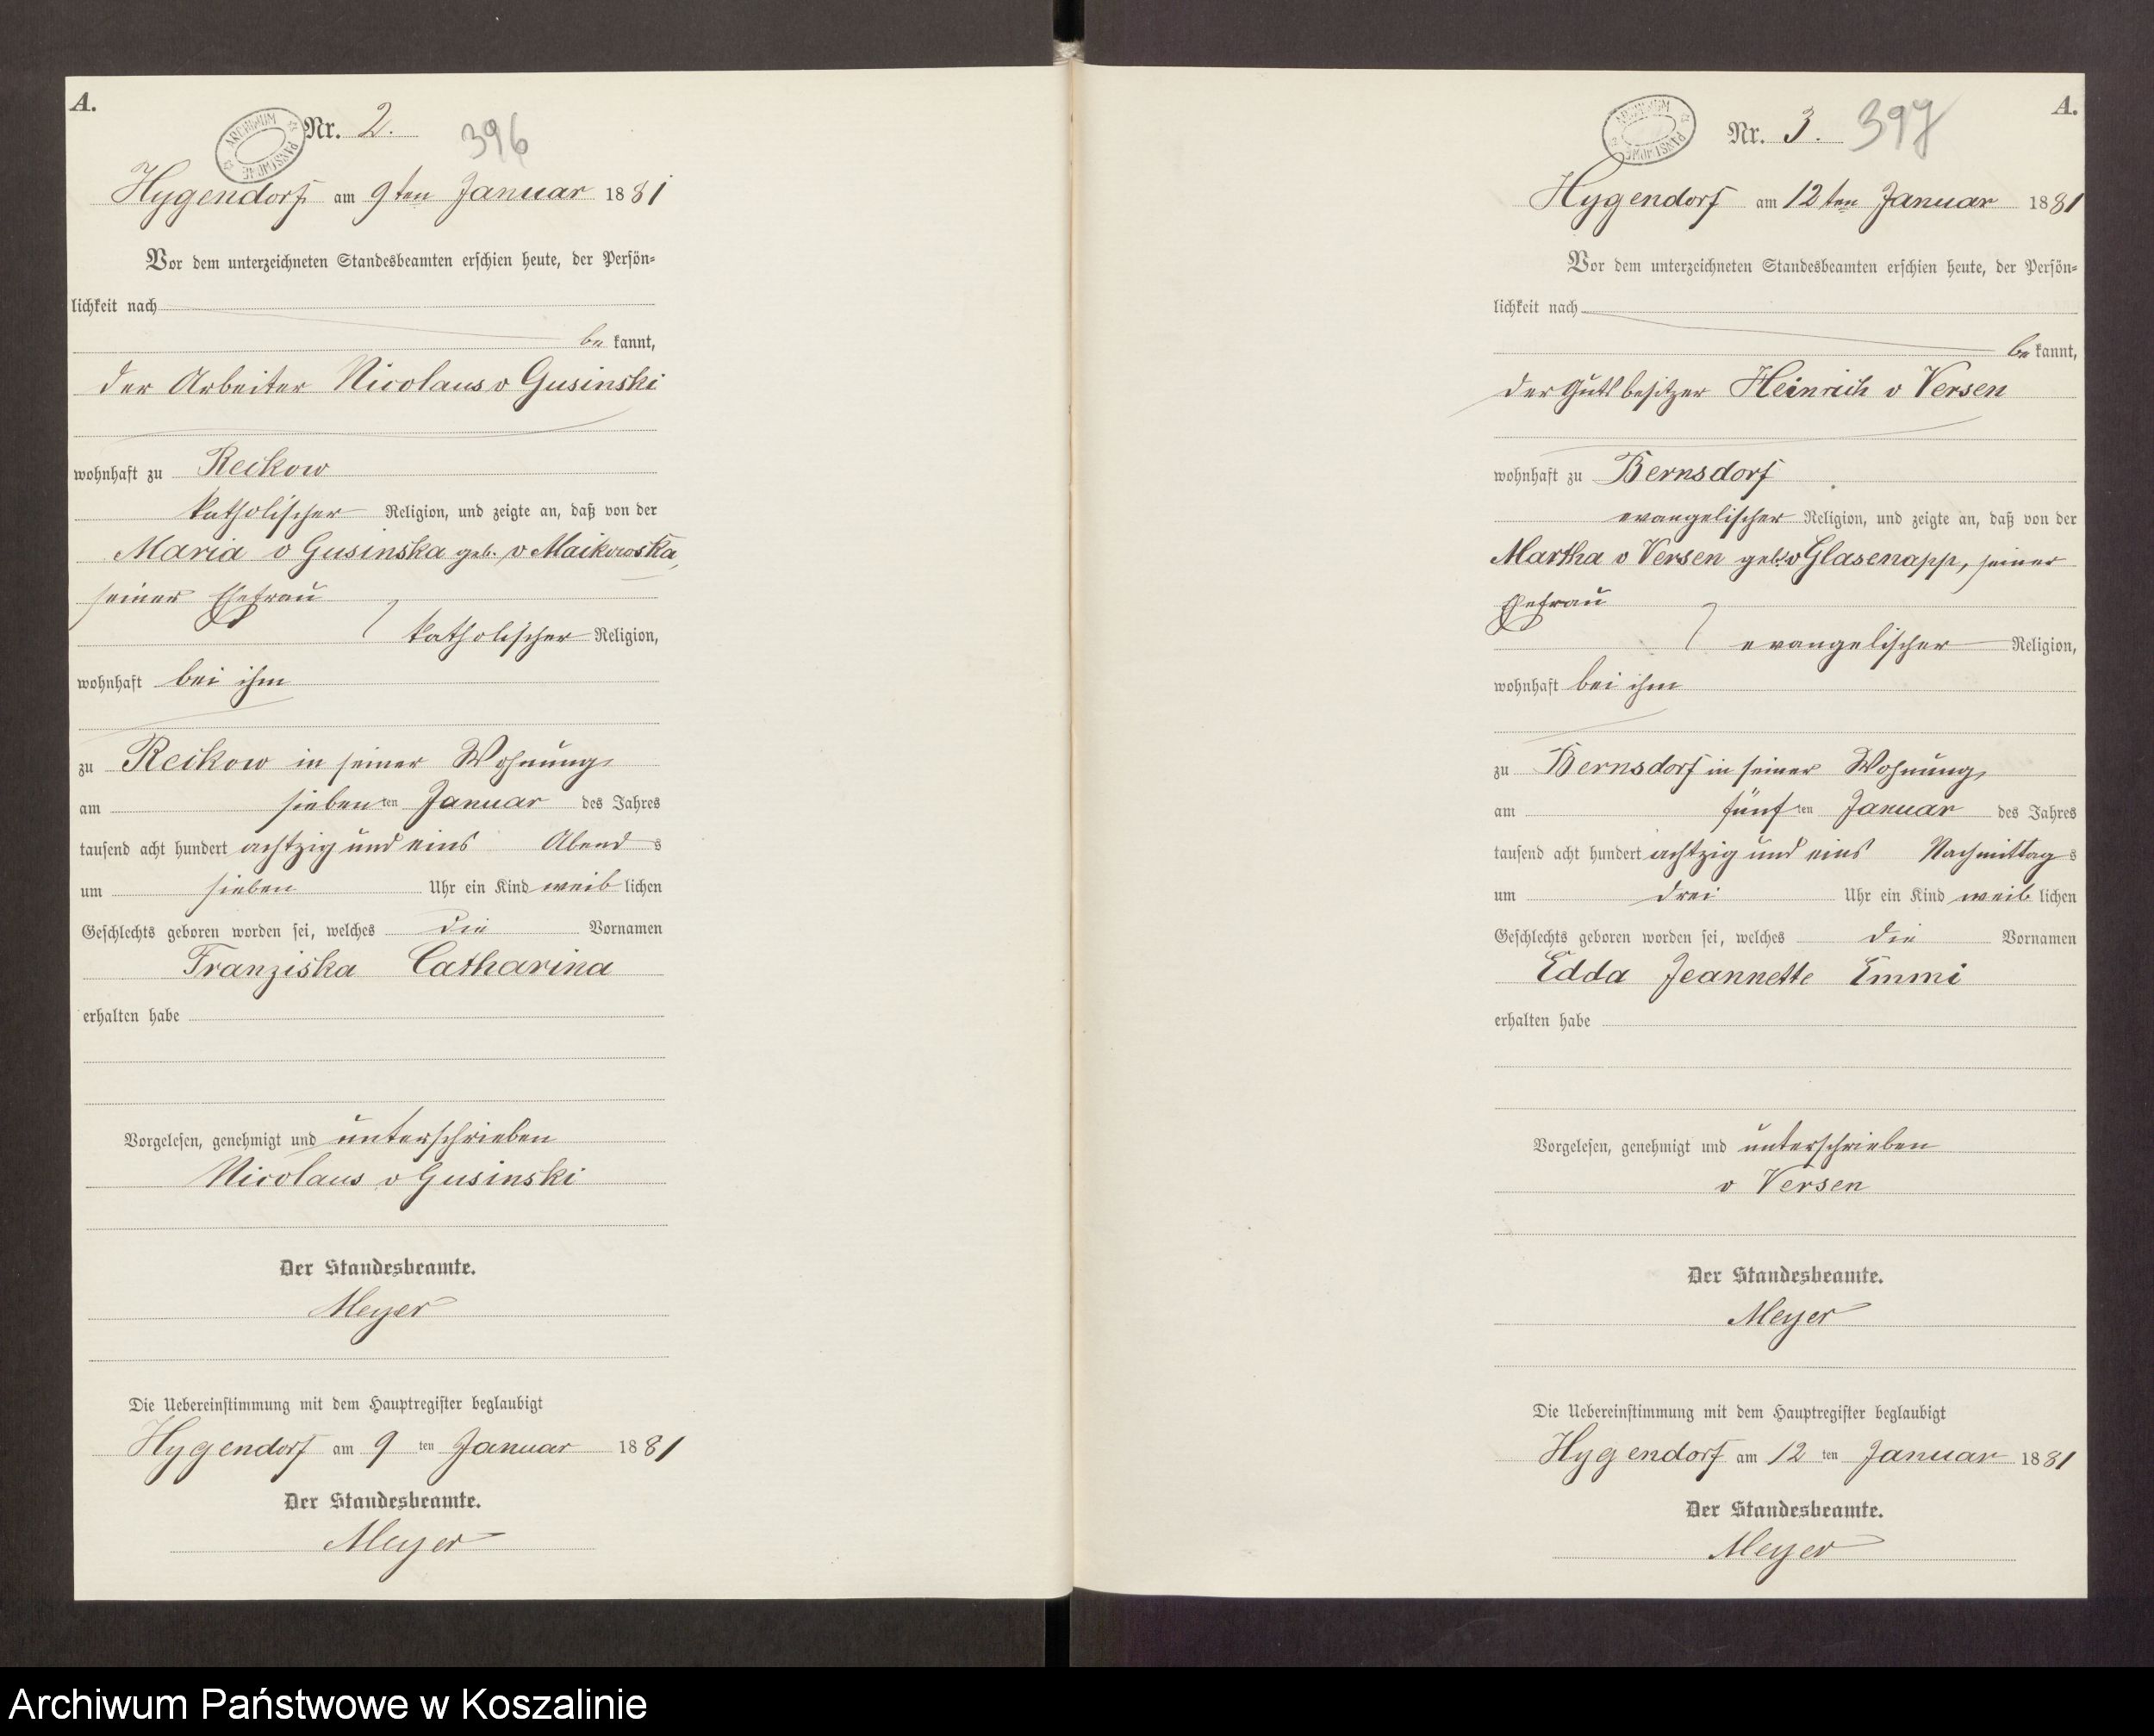 A.
ARCHIWUM PAŃSTWOWE
Nr. 2.
396
Hygendorf am 9ten Januar 1881
Vor dem unterzeichneten Standesbeamten erschien heute, der Persön-
lichkeit nach
be kannt,
der Arbeiter Nicolaus v Gusinski
wohnhaft zu Reckow
katholischer Religion, und zeigte an, daß von der
Maria v Gusinska geb. v Maikowska,
seiner Ehefrau
katholischer Religion,
wohnhaft bei ihm
zu Reckow in seiner Wohnung
am sieben ten Januar des Jahres
tausend acht hundert achtzig und eins Abend s
um sieben Uhr ein Kind weib lichen
Geschlechts geboren worden sei, welches die Vornamen
Franziska Catharina
erhalten habe
Vorgelesen, genehmigt und unterschrieben
Nicolaus v Gusinski
Der Standesbeamte.
Meyer
Die Uebereinstimmung mit dem Hauptregister beglaubigt
Hygendorf am 9 ten Januar 1881
Der Standesbeamte.
Meyer
A.
ARCHIWUM PAŃSTWOWE
Nr. 3.
397
Hygendorf am 12ten Januar 1881
Vor dem unterzeichneten Standesbeamten erschien heute, der Persön-
lichkeit nach
be kannt,
der Gutsbesitzer Heinrich v Versen
wohnhaft zu Bernsdorf
evangelischer Religion, und zeigte an, daß von der
Martha v Versen geb. v Glasenapp, seiner
Ehefrau
evangelischer Religion,
wohnhaft bei ihm
zu Bernsdorf in seiner Wohnung
am fünf ten Januar des Jahres
tausend acht hundert achtzig und eins Nachmittag s
um drei Uhr ein Kind weib lichen
Geschlechts geboren worden sei, welches die Vornamen
Edda Jeannette Emmi
erhalten habe
Vorgelesen, genehmigt und unterschrieben
v Versen
Der Standesbeamte.
Meyer
Die Uebereinstimmung mit dem Hauptregister beglaubigt
Hygendorf am 12 ten Januar 1881
Der Standesbeamte.
Meyer
Archiwum Państwowe w Koszalinie